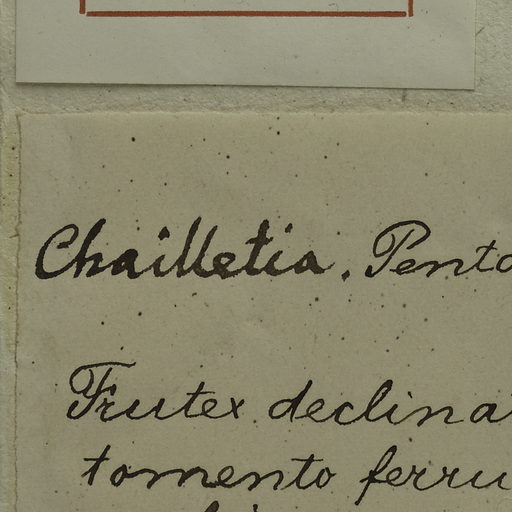 Chailletia. Pento
Frutex declina
tomento ferru